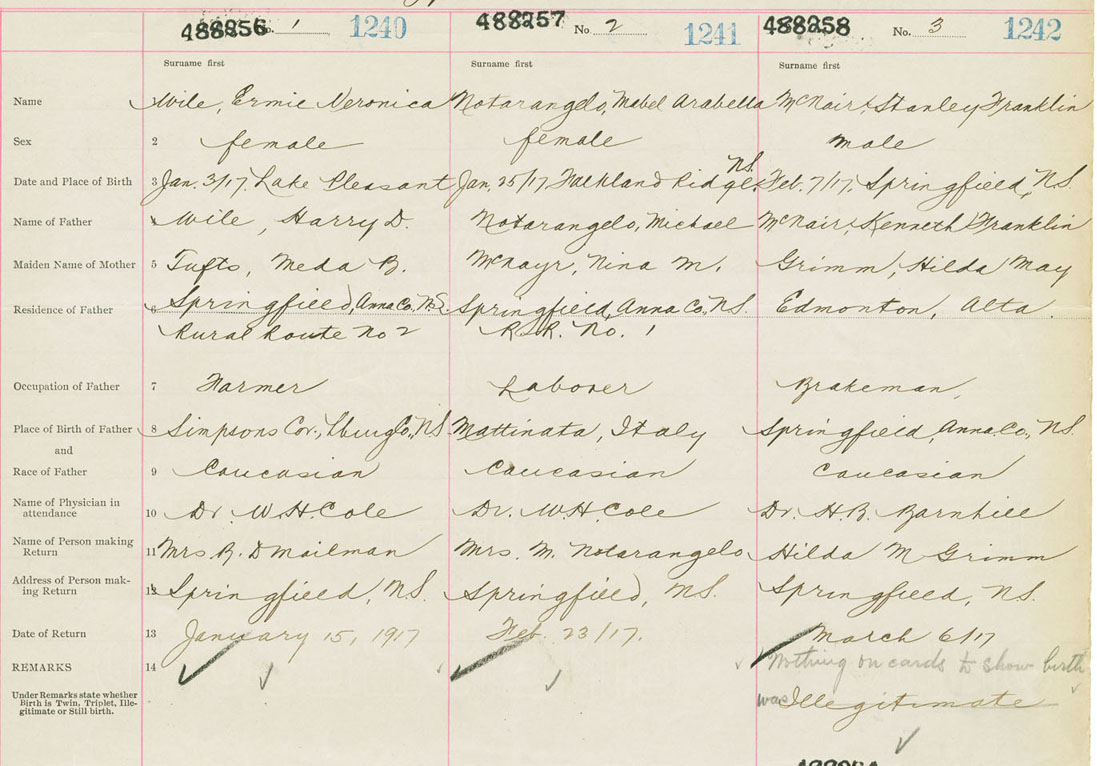 488256 No. 1 1240 488257 No. 2 1241 488258 No. 3 1242
Surname first Surname first Surname first
Name Wile, Ermie Veronica Notarangelo, Mabel Arabella McNair, Stanley Franklin
Sex 2 female female male
N.S.
Date and Place of Birth 3 Jan. 3/17, Lake Pleasant Jan. 25/17 Falkland Ridge, Feb. 7/17, Springfield, N.S.
Name of Father 4 Wile, Harry D. Notarangelo, Michael McNair, Kenneth Franklin
Maiden Name of Mother 5 Tufts, Meda B. McNayr, Nina M. Grimm, Hilda May
Residence of Father 6 Springfield, Anna Co., N.S. Springfield, Anna Co., N.S. Edmonton, Alta.
Rural Route No 2 R.R. No. 1
Occupation of Father 7 Farmer Laborer Brakeman,
Place of Birth of Father 8 Simpsons Cor., Lburg Co., N.S. Mattinata, Italy Springfield, Anna. Co., N.S.
and
Race of Father 9 Caucasian Caucasian Caucasian
Name of Physician in
attendance 10 Dr. W.H. Cole Dr. W.H. Cole Dr. H.B. Barnhill
Name of Person making
Return 11 Mrs R. D Mailman Mrs. M. Notarangelo Hilda M Grimm
Address of Person mak-
ing Return 12 Springfield, N.S. Springfield, N.S. Springfield, N.S.
Date of Return 13 January 15, 1917 Feb. 23/17. March 6/17
REMARKS 14 Nothing on cards to show birth
Under Remarks state whether
Birth is Twin, Triplet, Ille-
gitimate or Still birth. was Illegitimate